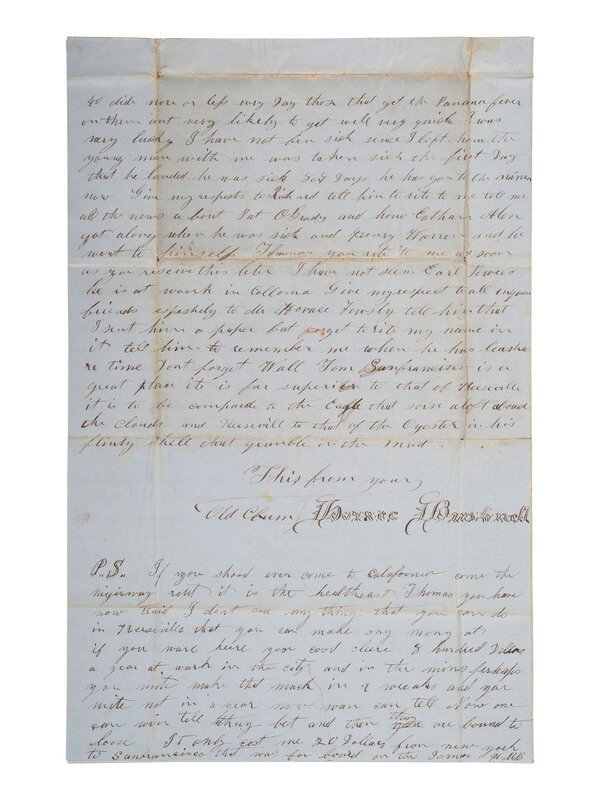 40 dide more or less evry Day those that get the Panama fever
on them ant very likely to get well very quick I was
very lucky I have not ben sick since I left home the
young man with me was taken sick the first Day
that he landed he was sick Days he has gon to the mines
now Give my respects to Richard tell him to rite to me tell me
all the news a bout Pat OGrady and how
got along when he was sick and Henry Warren and he
went to himself Thomas you rite to me as soon
as you reseive this leter I have not seen Earl
he is at work in Colloma Give my respect to all enquiren
friends espeshely to Mr Horace Towsly tell him that
I sent him a paper but forget to rite my name in
it tell him to remember me when he has leasha
re time Dont forget Wall Tom Sanfrancisco is a
great place ite is far superier to that of Keeseville
it is to be comparde to the Eagle that sorse aloft above
the clouds and Keesevill to that of the Oyester in his
flinty Shell that grumble in the mud
This from your
Old Chum Horace Bushnell
P.S. If you shood ever come to Califovnia come the
rout it is the healtheast Thomas you have
now traid I dont see any thing that you can do
in Keeseville that you can make any mony at
if you ware heire you cood cleire 8 hundred Dollars
a year at work in the city and in the mins perhaps
you mite make that much in 1 weeak and you
mite not in a year now man can tell Now one
can win tell thay bet and then thay are bound to
loose It only cost me 20 Dollars from new york
to Sanfrancisco that was for board on the